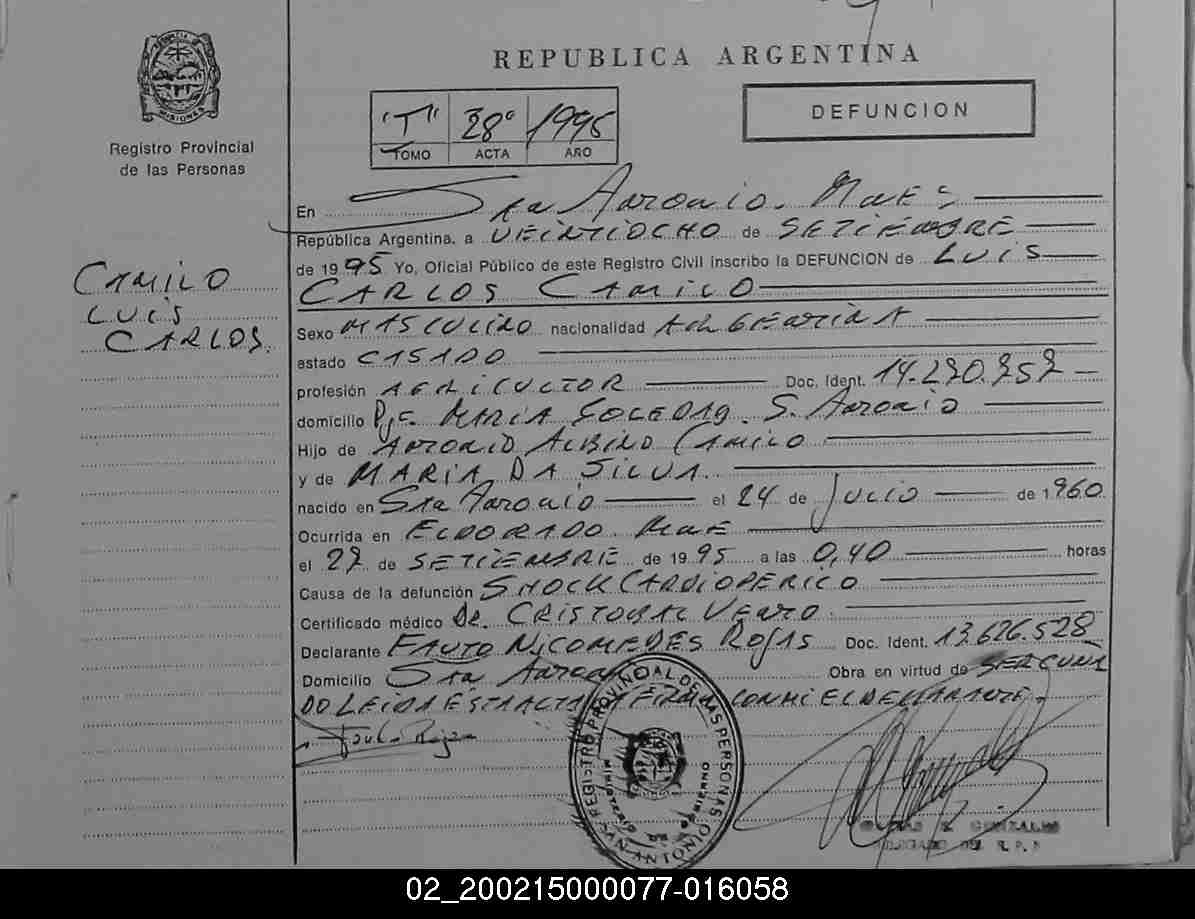 REPUBLICA ARGENTINA
MISIONES
Registro Provincial
de las Personas
"T" 28º 1995
TOMO ACTA AÑO
DEFUNCION
CAMILO
LUIS
CARLOS.
En Sn Antonio. Mnes
República Argentina, a VEINTIOCHO de SETIEMBRE
de 1995 Yo, Oficial Público de este Registro Civil inscribo la DEFUNCION de LUIS
CARLOS CAMILO
Sexo MASCULINO nacionalidad ARGENTINA
estado CASADO
profesión AGRICULTOR Doc. Ident. 14.270.757
domicilio Pje. MARIA SOLEDAD. S. Antonio
Hijo de ANTONIO ALBINO CAMILO
y de MARIA DA SILVA.
nacido en Sn Antonio el 24 de JULIO de 1960
Ocurrida en ELDORADO Mnes
el 27 de SETIEMBRE de 1995 a las 0,40 horas
Causa de la defunción SHOCK
Certificado médico DR. CRISTOBAL
Declarante NICOMEDES ROJAS Doc. Ident. 13.626.528
Domicilio Sn Antonio Obra en virtud de
DO LEIDA EL ACTA FIRMA CONMI EL DECLARANTE.
Rojas
REGISTRO PROVINCIAL DE LAS PERSONAS
MINISTERIO DE GOBIERNO
SAN ANTONIO
GONZALES
DELEGADO DEL R. P. P.
02_200215000077-016058